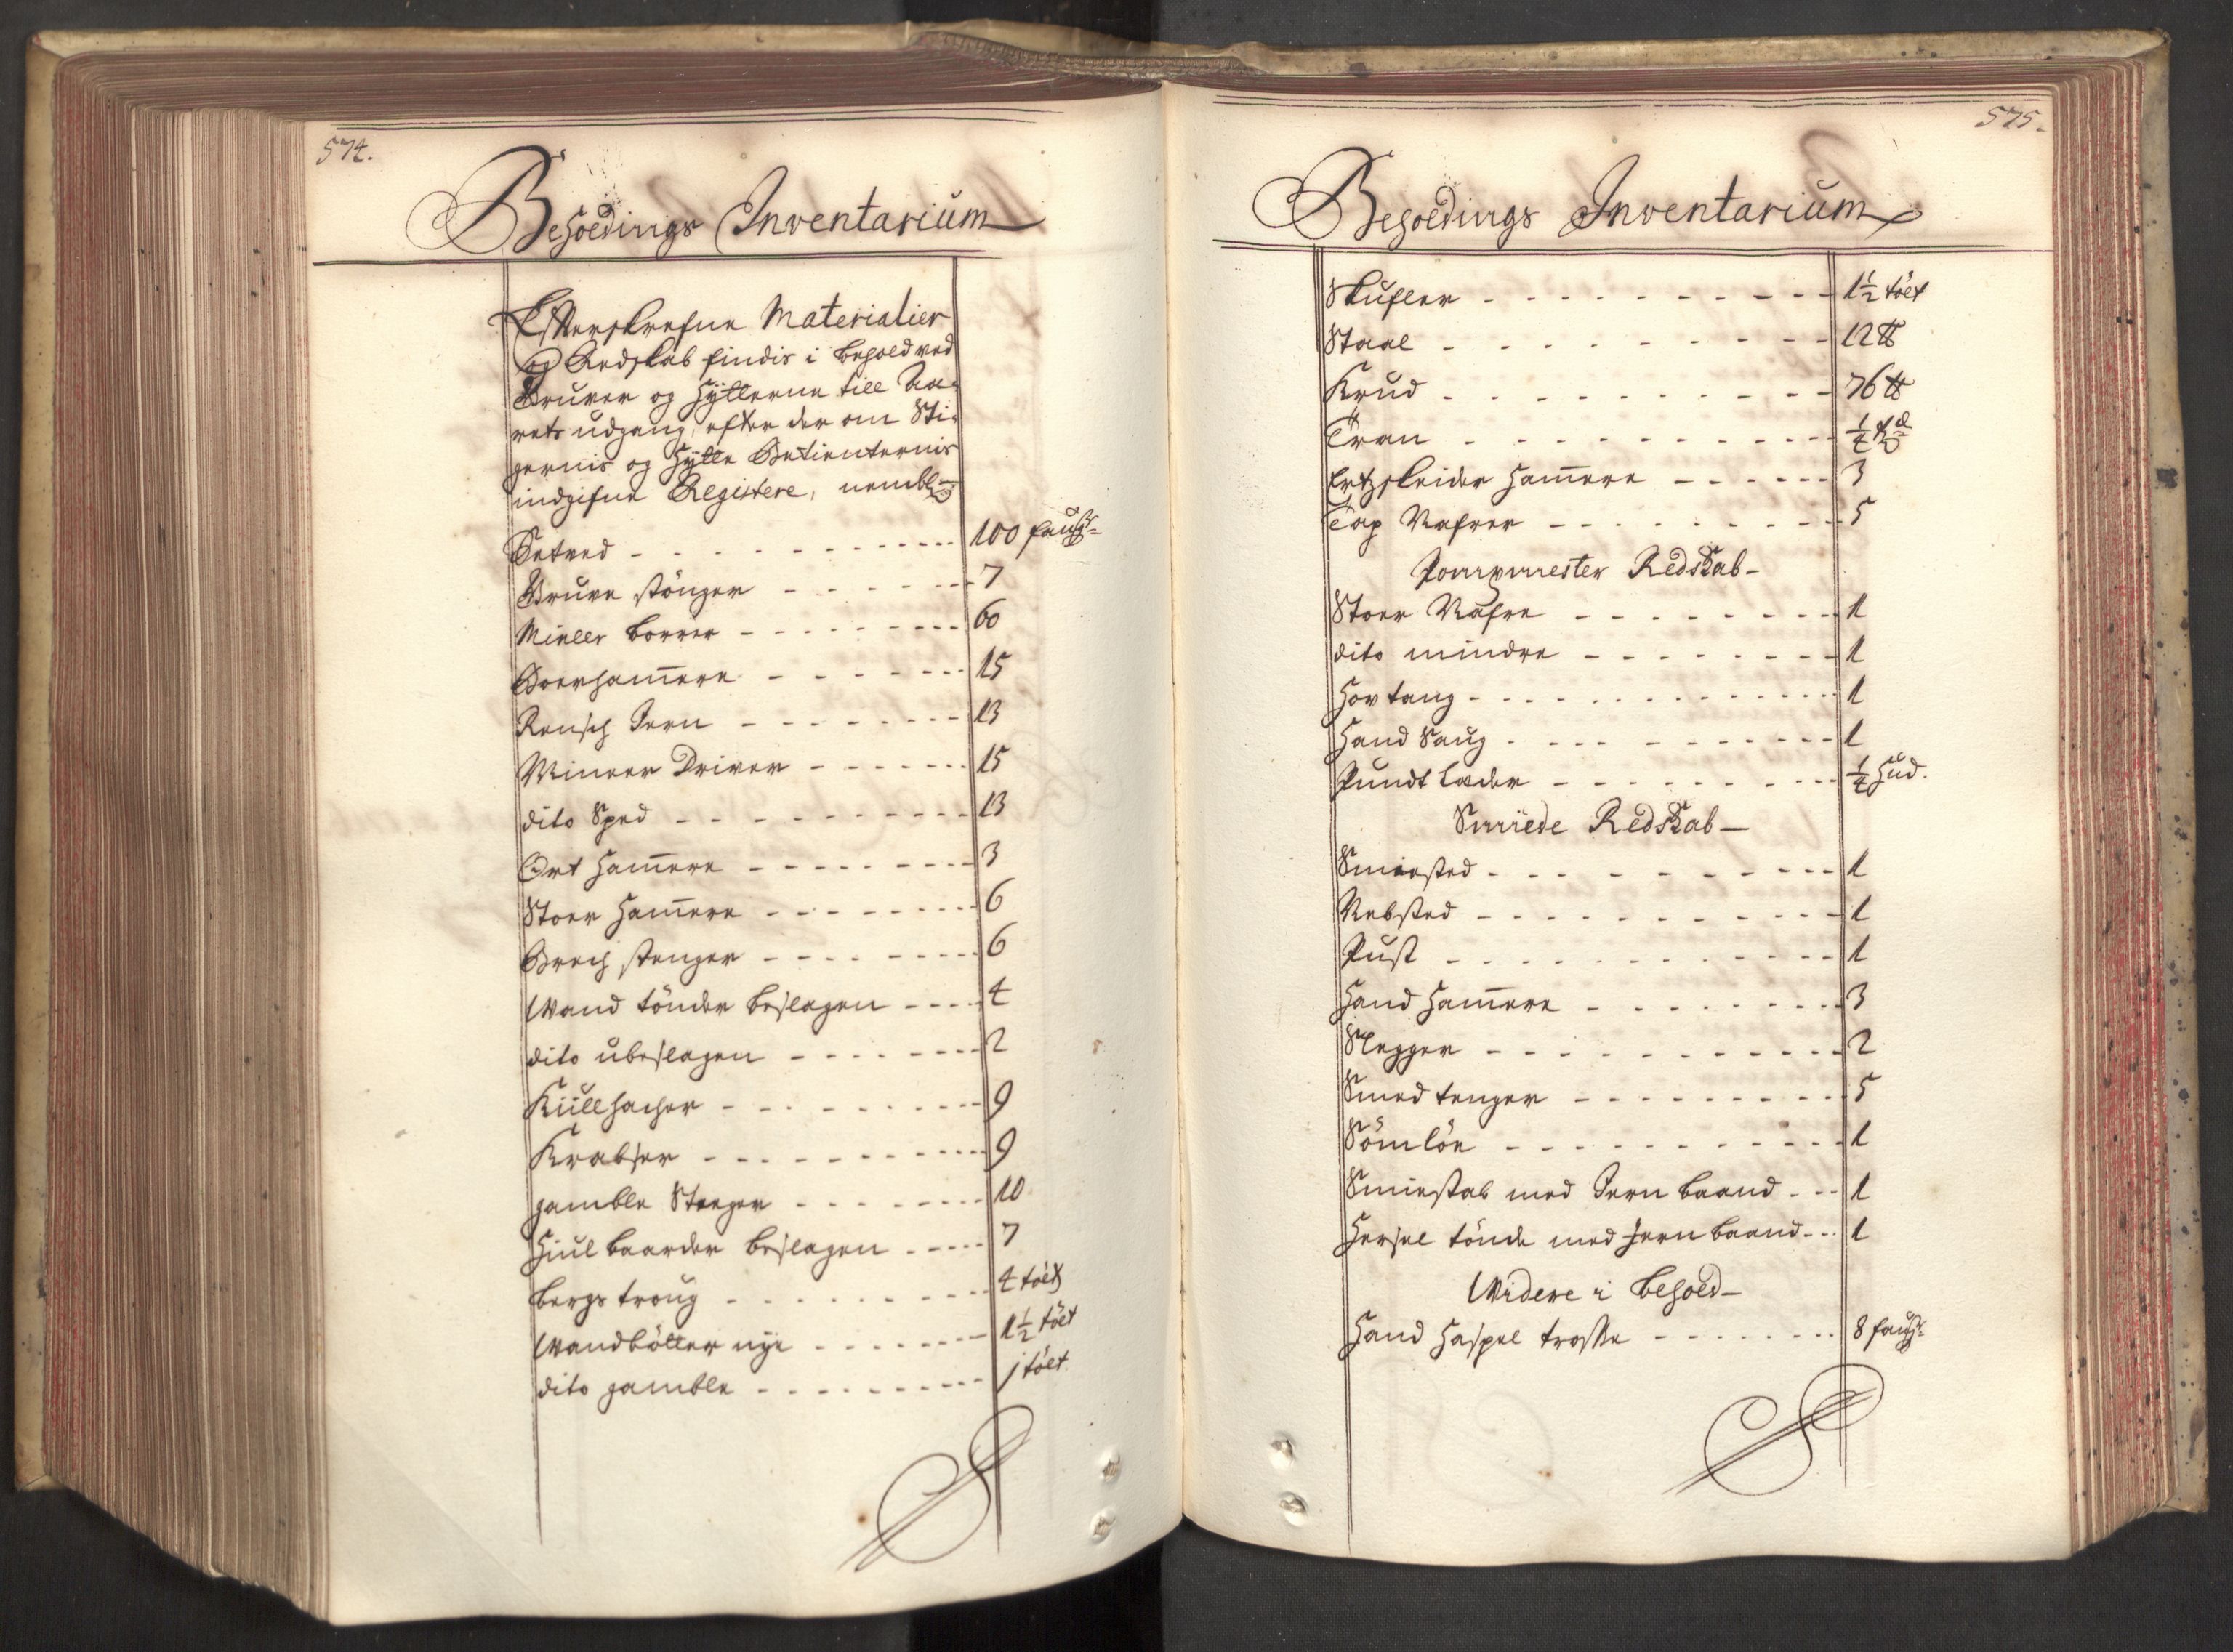 574.
Beholdings Inventarium
Efterskrefne Materialier
og Redskab findis i behold ved
Gruver og Hÿtterne till Aa-
rets udgang, efter der om Sti-
gernis og Hÿtte Betienternis
indgifne Registere, nembl:
Setved - - - 100 faufn
Gruve stönger - - - 7
Mineer borrer - - - 60
Boerhamere - - - 15
Rensch Jern - - - 13
Mineer Driver - - - 15
dito Sped - - - 13
Ort Hamere - - - 3
Stoer Hamere - - - 6
Brech stenger - - - 6
Wand tönder beslagen - - - 4
dito ubeslagen - - - 2
Kiillhacher - - - 9
Krabser - - - 9
gamble Steger - - - 10
Hiul baarder beslagen - - - 7
bergs troug - - - 4 tölt
Wandbötter nÿe - - - 1½ tölt
dito gamble - - - 1 tölt
575.
Beholdings Inventarium
Skufler - - - 1½ tölt
Staal - - - 12 ℔
Krud - - - 76 ℔
Tran - - - ¼
Ertzskeider Hamere - - - 3
Tap Nafrer - - - 5
Pompmester Redskab
Stoer Nafre - - - 1
dito mindre - - - 1
Hovtang - - - 1
Hand Saug - - - 1
Pundt Læder - - - ¼ Hud.
Smiede Redskab
Smiested - - - 1
Nebsted - - - 1
Pust - - - 1
Hand Hamere - - - 3
Slegger - - - 2
Smed tenger - - - 5
Sömlöe - - - 1
Smiestab med Jern baand - - - 1
Hersel tönde med Jern baand - - - 1
Widere i behold
Hand Haspel trosse - - - 8 faufn